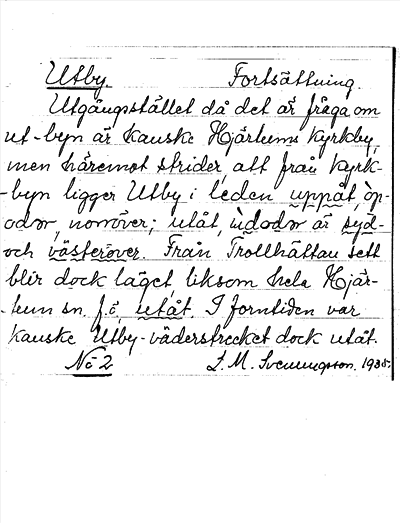 Utby. Fortsättning
Utgångstället då det är fråga om
ut-byn är kanske Hjärtums kyrkby,
men häremot strider att från kyrk-
-byn ligger Utby i leden uppåt, òp-
odər, norröver; utåt, ùdodər är syd-
och västeröver. Från Trollhättan sett
blir dock läget liksom hela Hjär-
-tum sn. f.ö. utåt. I forntiden var
kanske Utby-väderstrecket dock utåt.
No 2 L. M. Svenungsson. 1935.